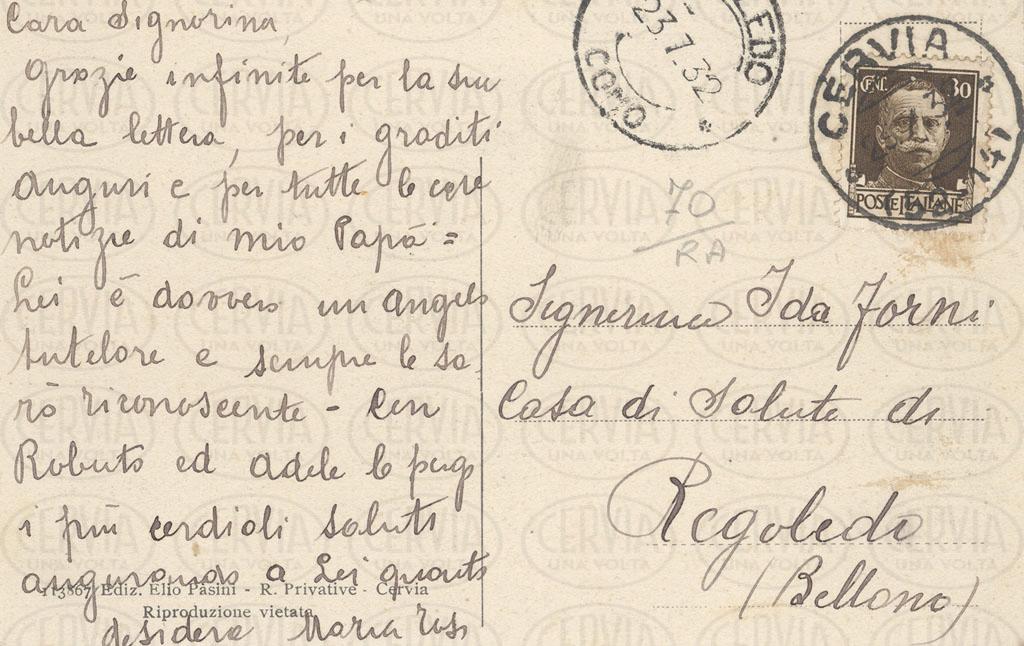 Cara Signorina,
Grazie infinite per la sua
bella lettera, per i graditi
auguri e per tutte le care
notizie di mio Papà =
Lei è davvero un angelo
tutelare e sempre le sa
rò riconoscente - Con
Roberto ed Adele le porgo
i più cordiali saluti
augurando a Lei quanto
desidera Maria
113867 Ediz. Elio Pasini - R. Privative - Cervia
Riproduzione vietata
LEDO
23.7.32
COMO
CERVIA
CENT. 30
POSTE ITALIANE
70
RA
Signorina Ida Forni
Casa di Salute di
Regoledo
(Bellano)
CERVIA
UNA VOLTA